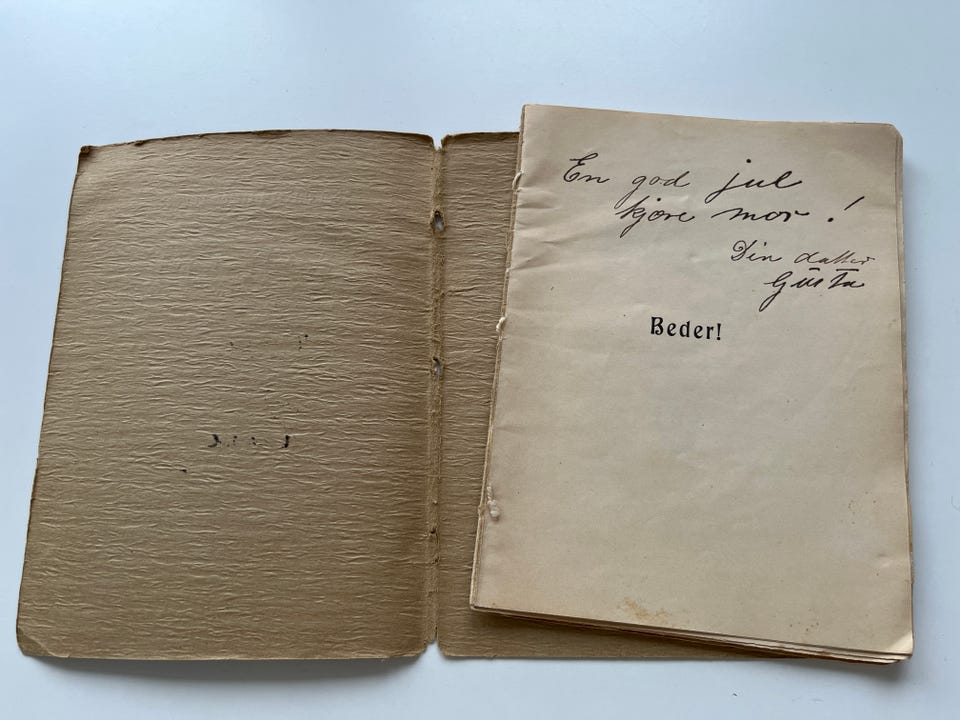 En god jul
kjøre mor !
Din datter
Gusta
Beder!